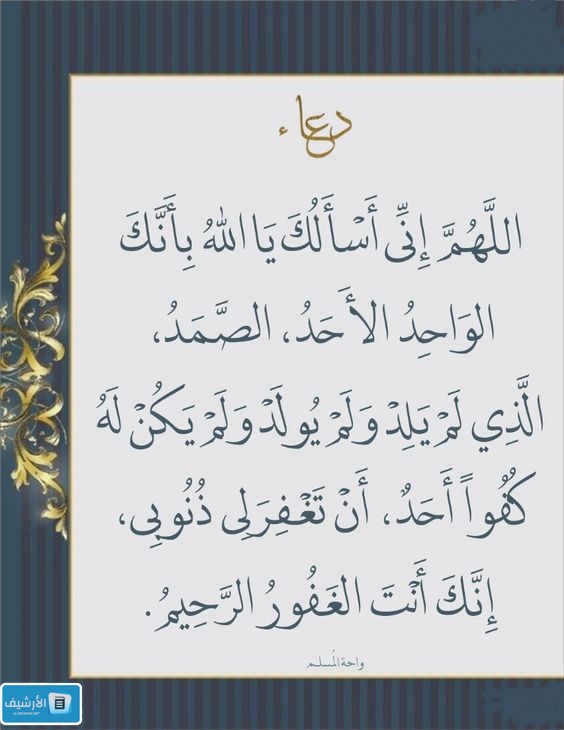 دعاء
اللَّهُمَّ إِنِّي أَسْأَلُكَ يَا اللهُ بِأَنَّكَ
الوَاحِدُ الأَحَدُ، الصَّمَدُ،
الَّذِي لَمْ يَلِدْ وَلَمْ يُولَدْ وَلَمْ يَكُنْ لَهُ
كُفُواً أَحَدٌ، أَنْ تَغْفِرَ لِي ذُنُوبِي،
إِنَّكَ أَنْتَ الغَفُورُ الرَّحِيمُ.
واحة المُسلم
الأرشيف